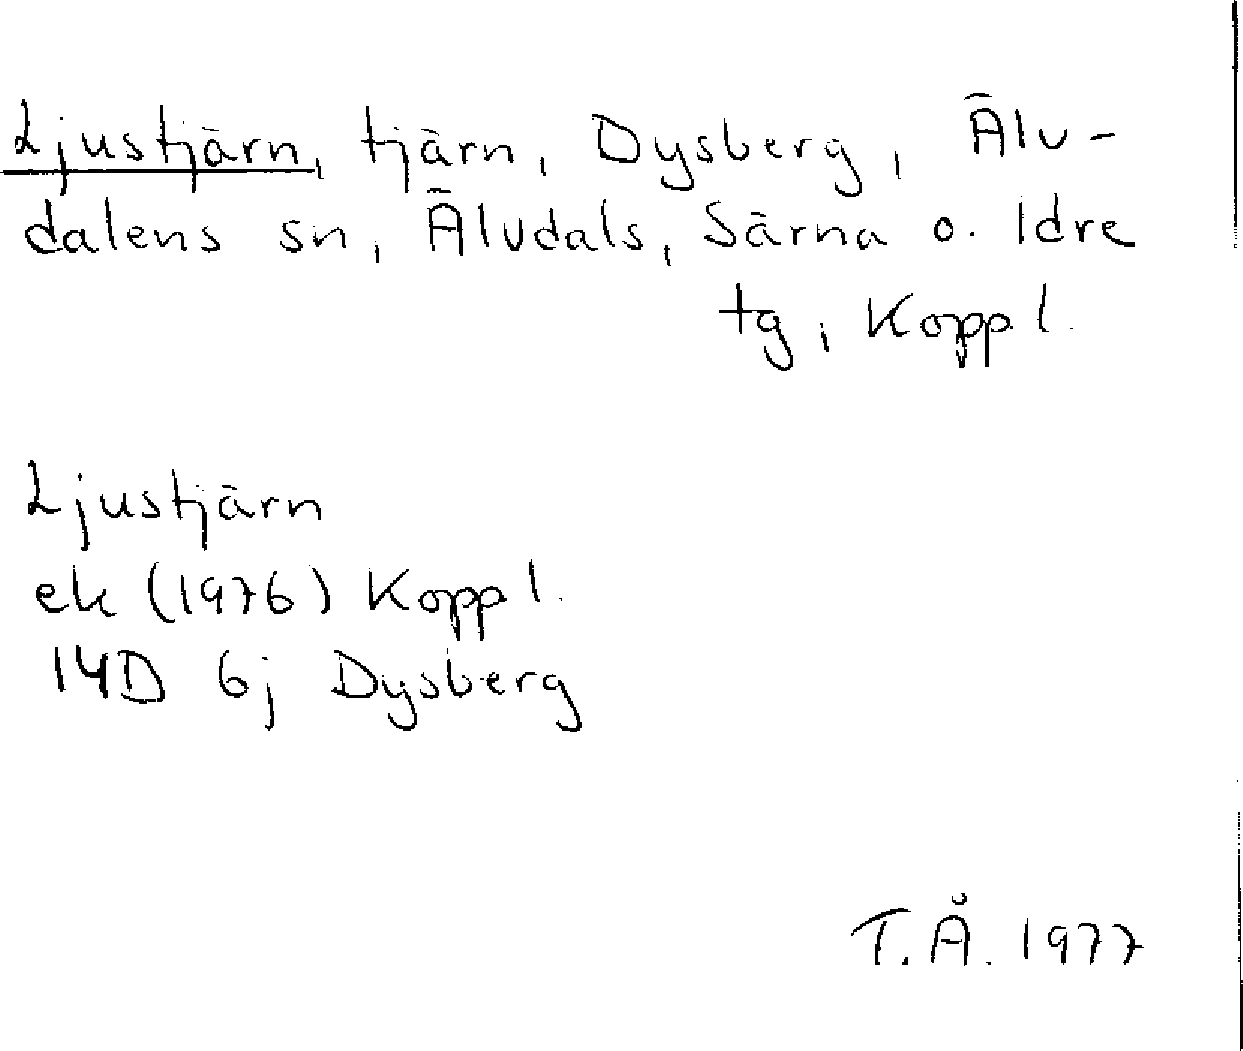 Ljustjärn, tjärn, Dysberg, Älv-
dalens sn, Älvdals, Särna o. Idre
tg, Kopp l.
Ljustjärn
ek (1976) Kopp l.
14D 6j Dysberg
T.Å. 1977